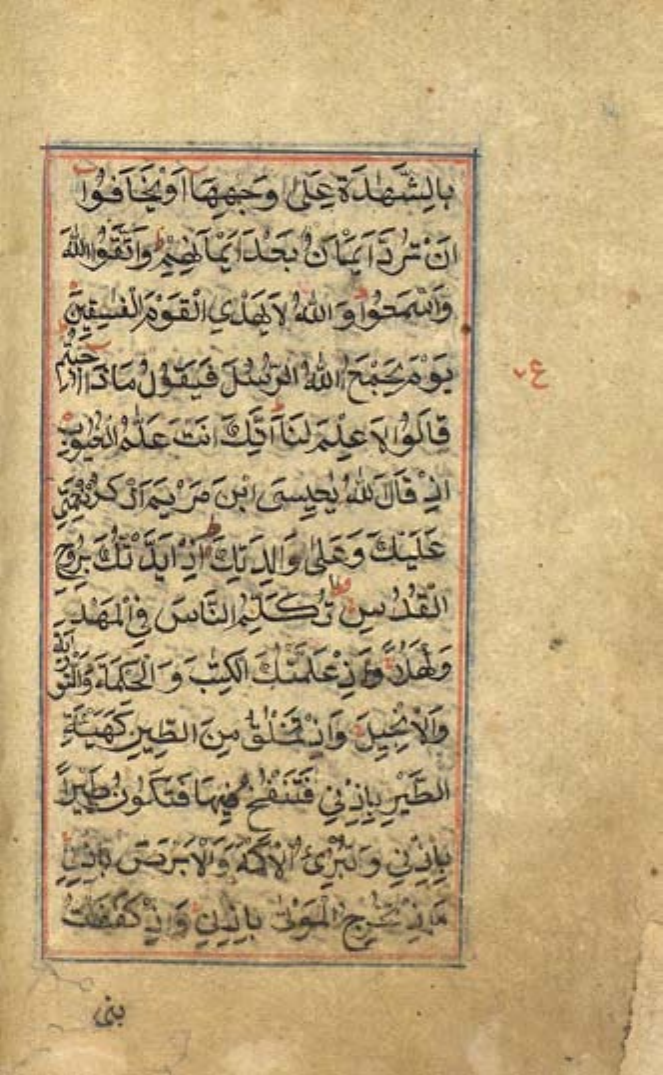 بِالشَّهٰدَةِ عَلٰی وَجْهِهَا اَوْ یَخَافُوْا
اَنْ تُرَدَّ اَیْمَانٌ بَعْدَ اَیْمَانِهِمْ وَاتَّقُوا اللّٰهَ
وَاسْمَعُوْا وَ اللّٰهُ لَا یَهْدِی الْقَوْمَ الْفٰسِقِیْنَ
یَوْمَ یَجْمَعُ اللّٰهُ الرُّسُلَ فَیَقُوْلُ مَاذَا اُجِبْتُمْ
قَالُوْا لَا عِلْمَ لَنَا اِنَّكَ اَنْتَ عَلَّامُ الْغُیُوْبِ
اِذْ قَالَ اللّٰهُ یٰعِیْسَی ابْنَ مَرْیَمَ اذْكُرْ نِعْمَتِیْ
عَلَیْكَ وَعَلٰی وَالِدَتِكَ اِذْ اَیَّدْتُّكَ بِرُوْحِ
الْقُدُسِ تُكَلِّمُ النَّاسَ فِی الْمَهْدِ
وَكَهْلًا وَاِذْ عَلَّمْتُكَ الْكِتٰبَ وَ الْحِكْمَةَ وَالتَّوْرٰیةَ
وَالْاِنْجِیْلَ وَاِذْ تَخْلُقُ مِنَ الطِّیْنِ كَهَیْئَةِ
الطَّیْرِ بِاِذْنِیْ فَتَنْفُخُ فِیْهَا فَتَكُوْنُ طَیْرًا
بِاِذْنِیْ وَتُبْرِئُ الْاَكْمَهَ وَالْاَبْرَصَ بِاِذْنِیْ
وَاِذْ تُخْرِجُ الْمَوْتٰی بِاِذْنِیْ وَاِذْ كَفَفْتُ
بنی